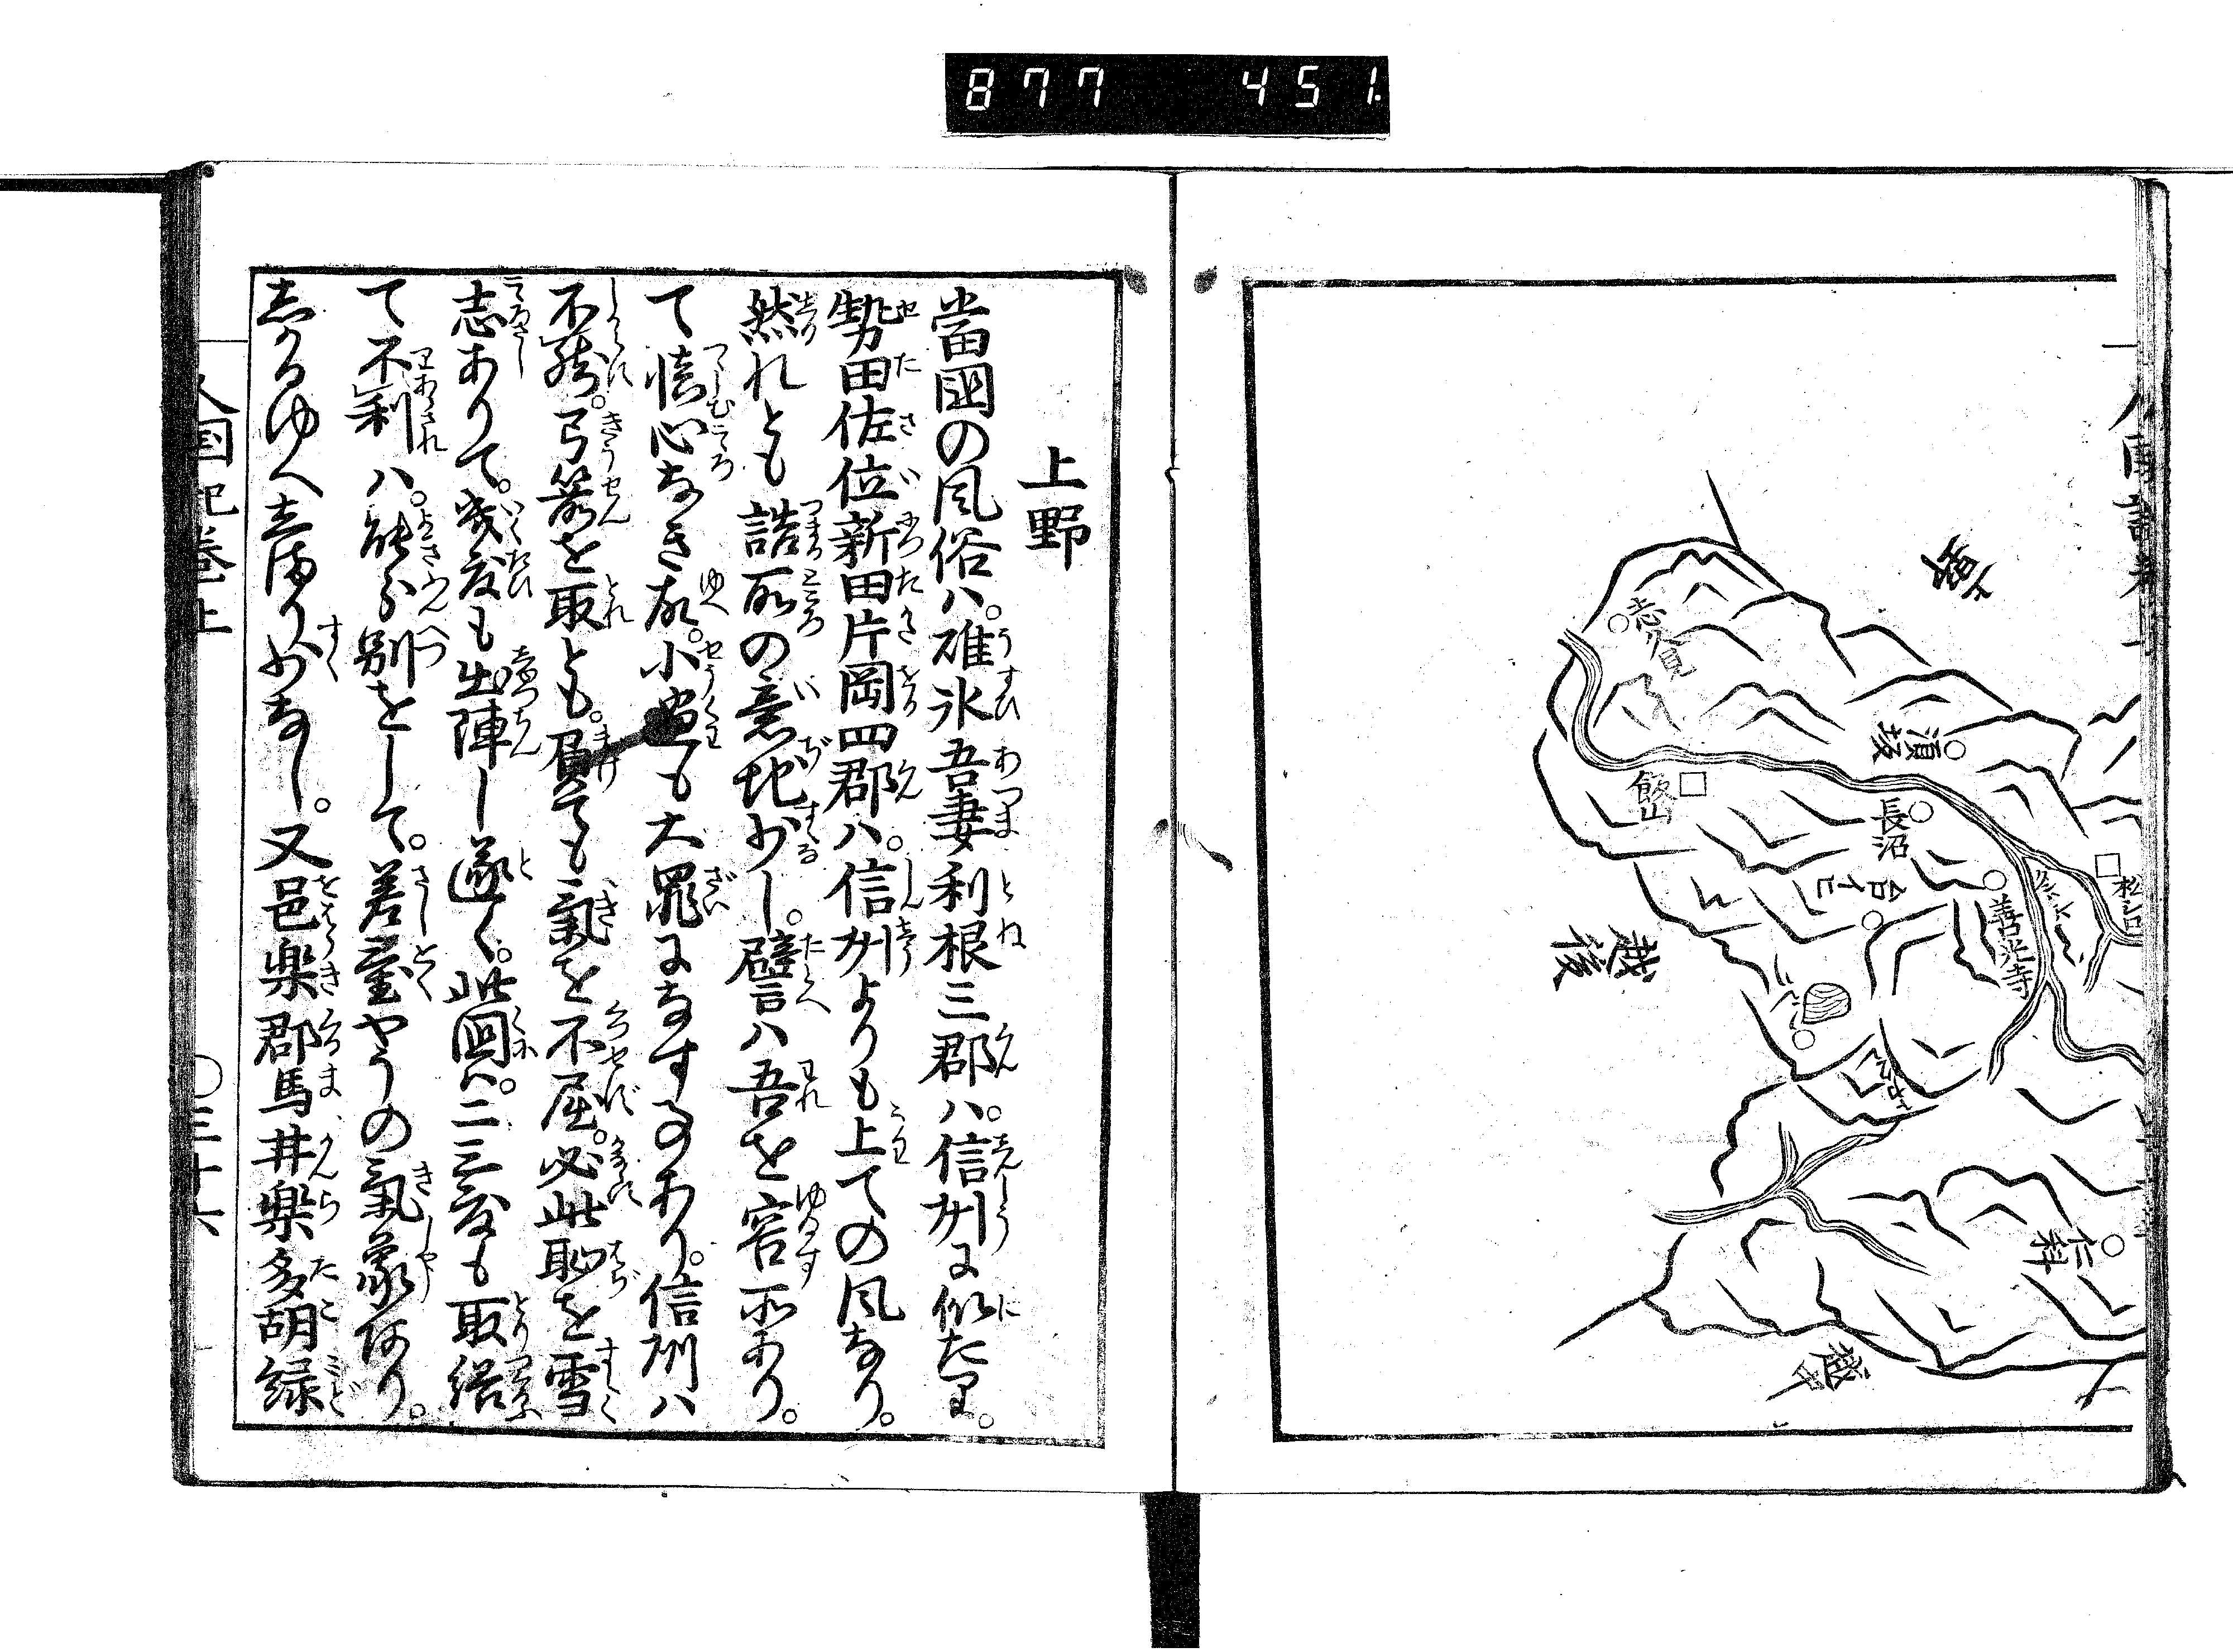 877 451
越後
越中
飯山
須坂
長沼
善光寺
仁科
上野
當國の風俗ハ。碓氷吾妻利根三郡ハ。信州に似たり。
勢田佐位新田片岡四郡ハ。信州よりも上ての風なり。
然れとも詰所の意地少し。譬ハ吾を容所あり。
て慎心なき故。小過も大罪になす事あり。信州ハ
不然。弓箭を取とも。負ても氣を不屈。必此恥を雪
志ありて。幾度も出陣し遂く。此國ハ。二三度も取結
て不利ハ。能分別をして。差置やうの氣象あり。
志かるゆへ志まり少なし。又邑楽郡馬井楽多胡緑
人国記巻上
〇三十六